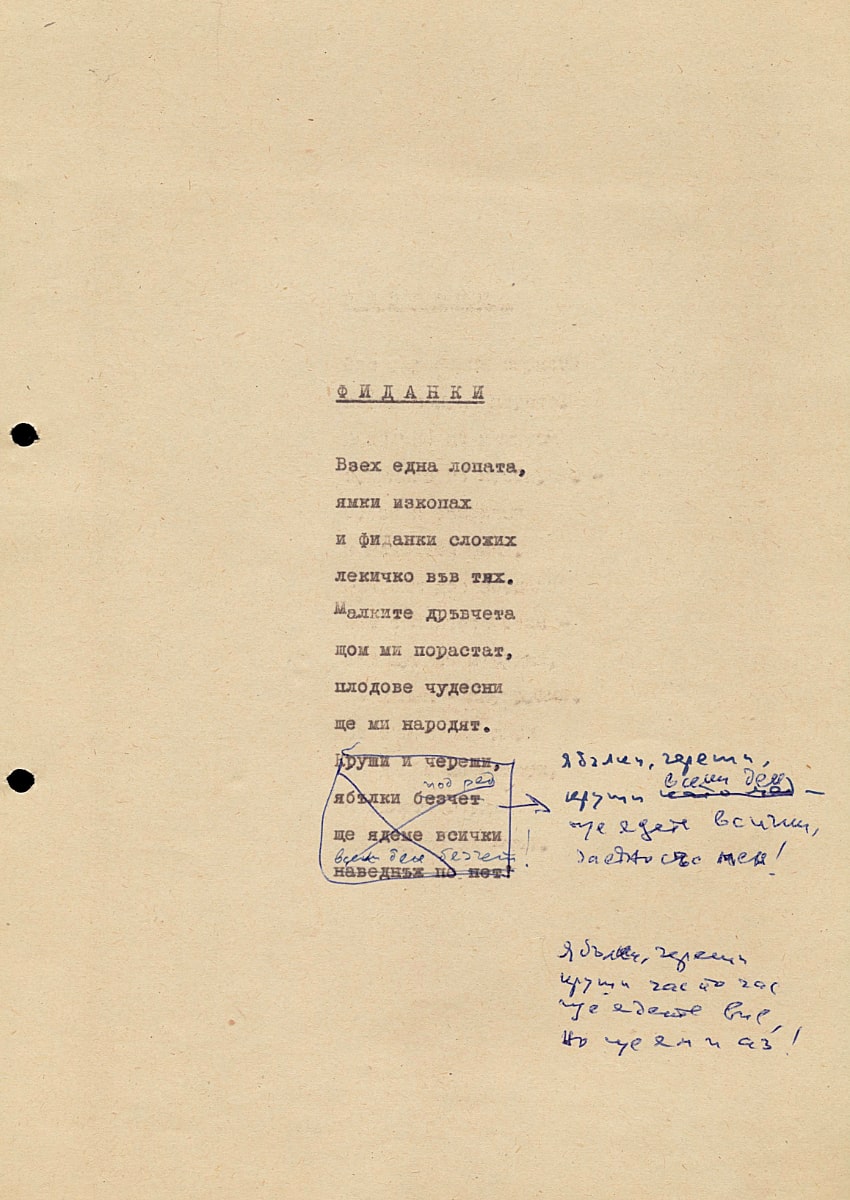 ФИДАНКИ
Взех една лопата,
ямки изкопах
и фиданки сложих
лекичко във тях.
Малките дръвчета
щом ми порастат,
плодове чудесни
ще ми народят.
Круши и череши,
под ред
ябълки безчет
ще ядеме всички
всеки ден безчет!
наведнъж по пет!
Ябълки, череши,
всеки ден
круши –
ще ядете всички,
заедно със мен!
Ябълки, череши
круши час по час
ще ядете вие,
но ще ям и аз!